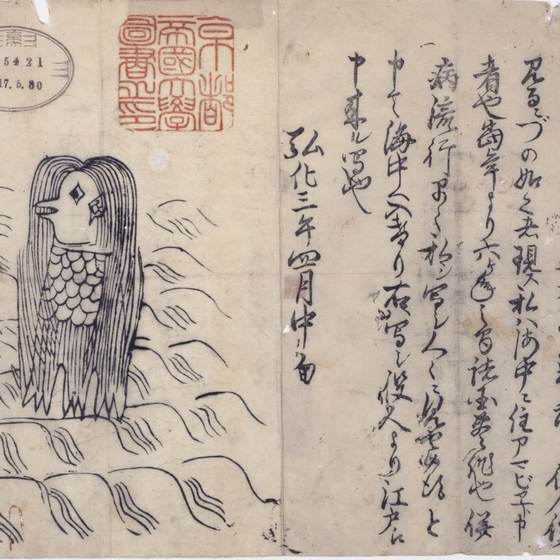 見るニづの如く者現ス私ハ海中ニ住アマビヱト申
者也當年より六ヶ年之間諸国豊作也併
病流行早々私ヲ写シ人々ニ見せ候得と
申て海中へ入けり右写シ役人より江戸え
申来ル写也
弘化三年四月中旬
京都
帝國大學
圖書之印
5421
17.5.30